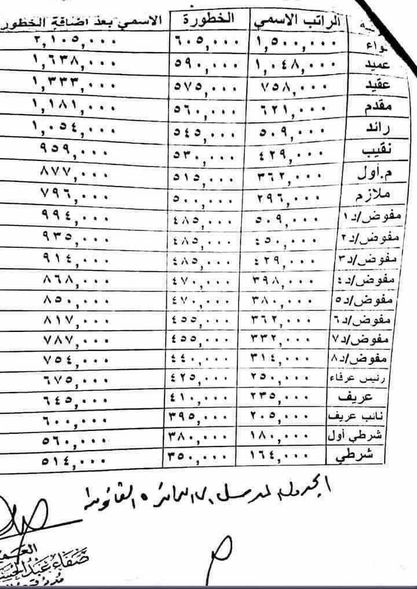 الراتب الاسمي الخطورة الاسمي بعد اضافة الخطورة
لواء ١,٥٠٠,٠٠٠ ٦٠٥,٠٠٠ ٢,١٠٥,٠٠٠
عميد ١,٠٤٨,٠٠٠ ٥٩٠,٠٠٠ ١,٦٣٨,٠٠٠
عقيد ٧٥٨,٠٠٠ ٥٧٥,٠٠٠ ١,٣٣٣,٠٠٠
مقدم ٦٢١,٠٠٠ ٥٦٠,٠٠٠ ١,١٨١,٠٠٠
رائد ٥٠٩,٠٠٠ ٥٤٥,٠٠٠ ١,٠٥٤,٠٠٠
نقيب ٤٢٩,٠٠٠ ٥٣٠,٠٠٠ ٩٥٩,٠٠٠
م.اول ٣٦٢,٠٠٠ ٥١٥,٠٠٠ ٨٧٧,٠٠٠
ملازم ٢٩٦,٠٠٠ ٥٠٠,٠٠٠ ٧٩٦,٠٠٠
مفوض/د١ ٥٠٩,٠٠٠ ٤٨٥,٠٠٠ ٩٩٤,٠٠٠
مفوض/د٢ ٤٥٠,٠٠٠ ٤٨٥,٠٠٠ ٩٣٥,٠٠٠
مفوض/د٣ ٤٢٩,٠٠٠ ٤٨٥,٠٠٠ ٩١٤,٠٠٠
مفوض/د٤ ٣٩٨,٠٠٠ ٤٧٠,٠٠٠ ٨٦٨,٠٠٠
مفوض/د٥ ٣٨٠,٠٠٠ ٤٧٠,٠٠٠ ٨٥٠,٠٠٠
مفوض/د٦ ٣٦٢,٠٠٠ ٤٥٥,٠٠٠ ٨١٧,٠٠٠
مفوض/د٧ ٣٣٢,٠٠٠ ٤٥٥,٠٠٠ ٧٨٧,٠٠٠
مفوض/د٨ ٣١٤,٠٠٠ ٤٤٠,٠٠٠ ٧٥٤,٠٠٠
رئيس عرفاء ٢٥٠,٠٠٠ ٤٢٥,٠٠٠ ٦٧٥,٠٠٠
عريف ٢٣٥,٠٠٠ ٤١٠,٠٠٠ ٦٤٥,٠٠٠
نائب عريف ٢٠٥,٠٠٠ ٣٩٥,٠٠٠ ٦٠٠,٠٠٠
شرطي أول ١٨٠,٠٠٠ ٣٨٠,٠٠٠ ٥٦٠,٠٠٠
شرطي ١٦٤,٠٠٠ ٣٥٠,٠٠٠ ٥١٤,٠٠٠
الجدول المرسل الى الدائرة القانونية
صفاء